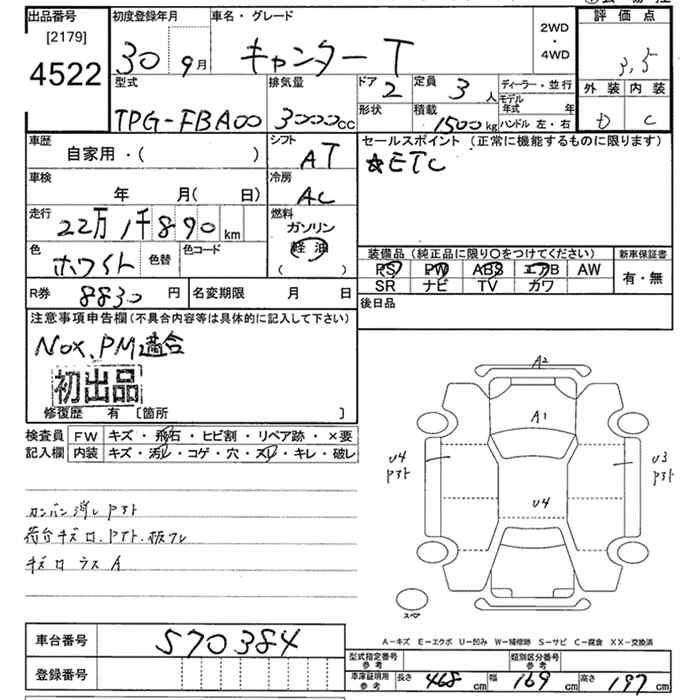 出品番号 初度登録年月 車名・グレード 2WD ・ 4WD 評価点
[2179]
4522 30 9月 キャンター T 3.5
型式 排気量 ドア 2 定員 3人 ディーラー・並行 外装 内装
TPG-FBA00 3000cc 形状 積載 1500kg モデル年式 年 D C
ハンドル 左・右
車歴 自家用・( ) シフト AT セールスポイント (正常に機能するものに限ります)
☆ETC
車検 年 月( 日) 冷房 AC
走行 22万1千890km 燃料 ガソリン
軽油
( )
色 ホワイト 色替 色コード
装備品 (純正品に限り○をつけてください) 新車保証書
PS PW ABS エアB AW 有・無
SR ナビ TV カワ
R券 8830円 名変期限 月 日 後日品
注意事項申告欄(不具合内容等は具体的に記入して下さい)
NOX、PM適合
初出品
修復歴 有 [箇所 ]
検査員 FW キズ・飛石・ヒビ割・リペア跡・×要
記入欄 内装 キズ・汚レ・コゲ・穴・スレ・キレ・破レ
A2
A1
U4 U3
Pアト Pアト
U4
カンバン消しPアト
荷台キズロ、Pアト、板ワレ
キズロ ラスA
スペア
車台番号 570384
A-キズ E-エクボ U-凹み W-補修跡 S-サビ C-腐食 XX-交換済
型式指定番号 参考 類別区分番号 参考
登録番号 車庫証明用 参考 長さ 468cm 幅 169cm 高さ 197cm